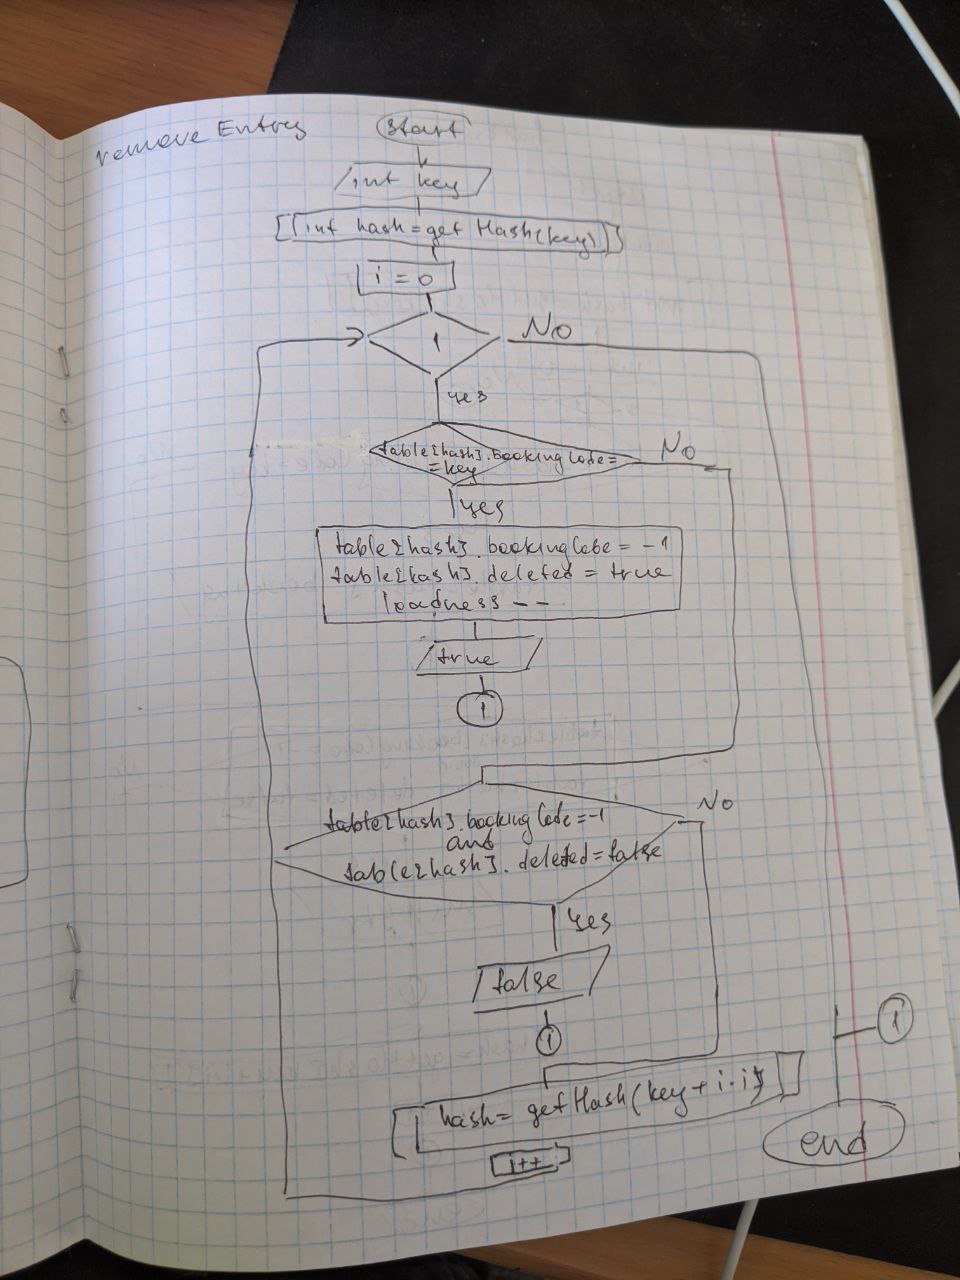 remove Entry
start
int key
int hash=get Hash(key)
i = 0
1
No
yes
table[hash].bookingCode=
=key
No
yes
table[hash].bookingCode = -1
table[hash].deleted = true
loadness --
true
1
table[hash].bookingCode=-1
and
table[hash].deleted=false
No
yes
false
1
1
hash= getHash(key+i·i)
i++
end